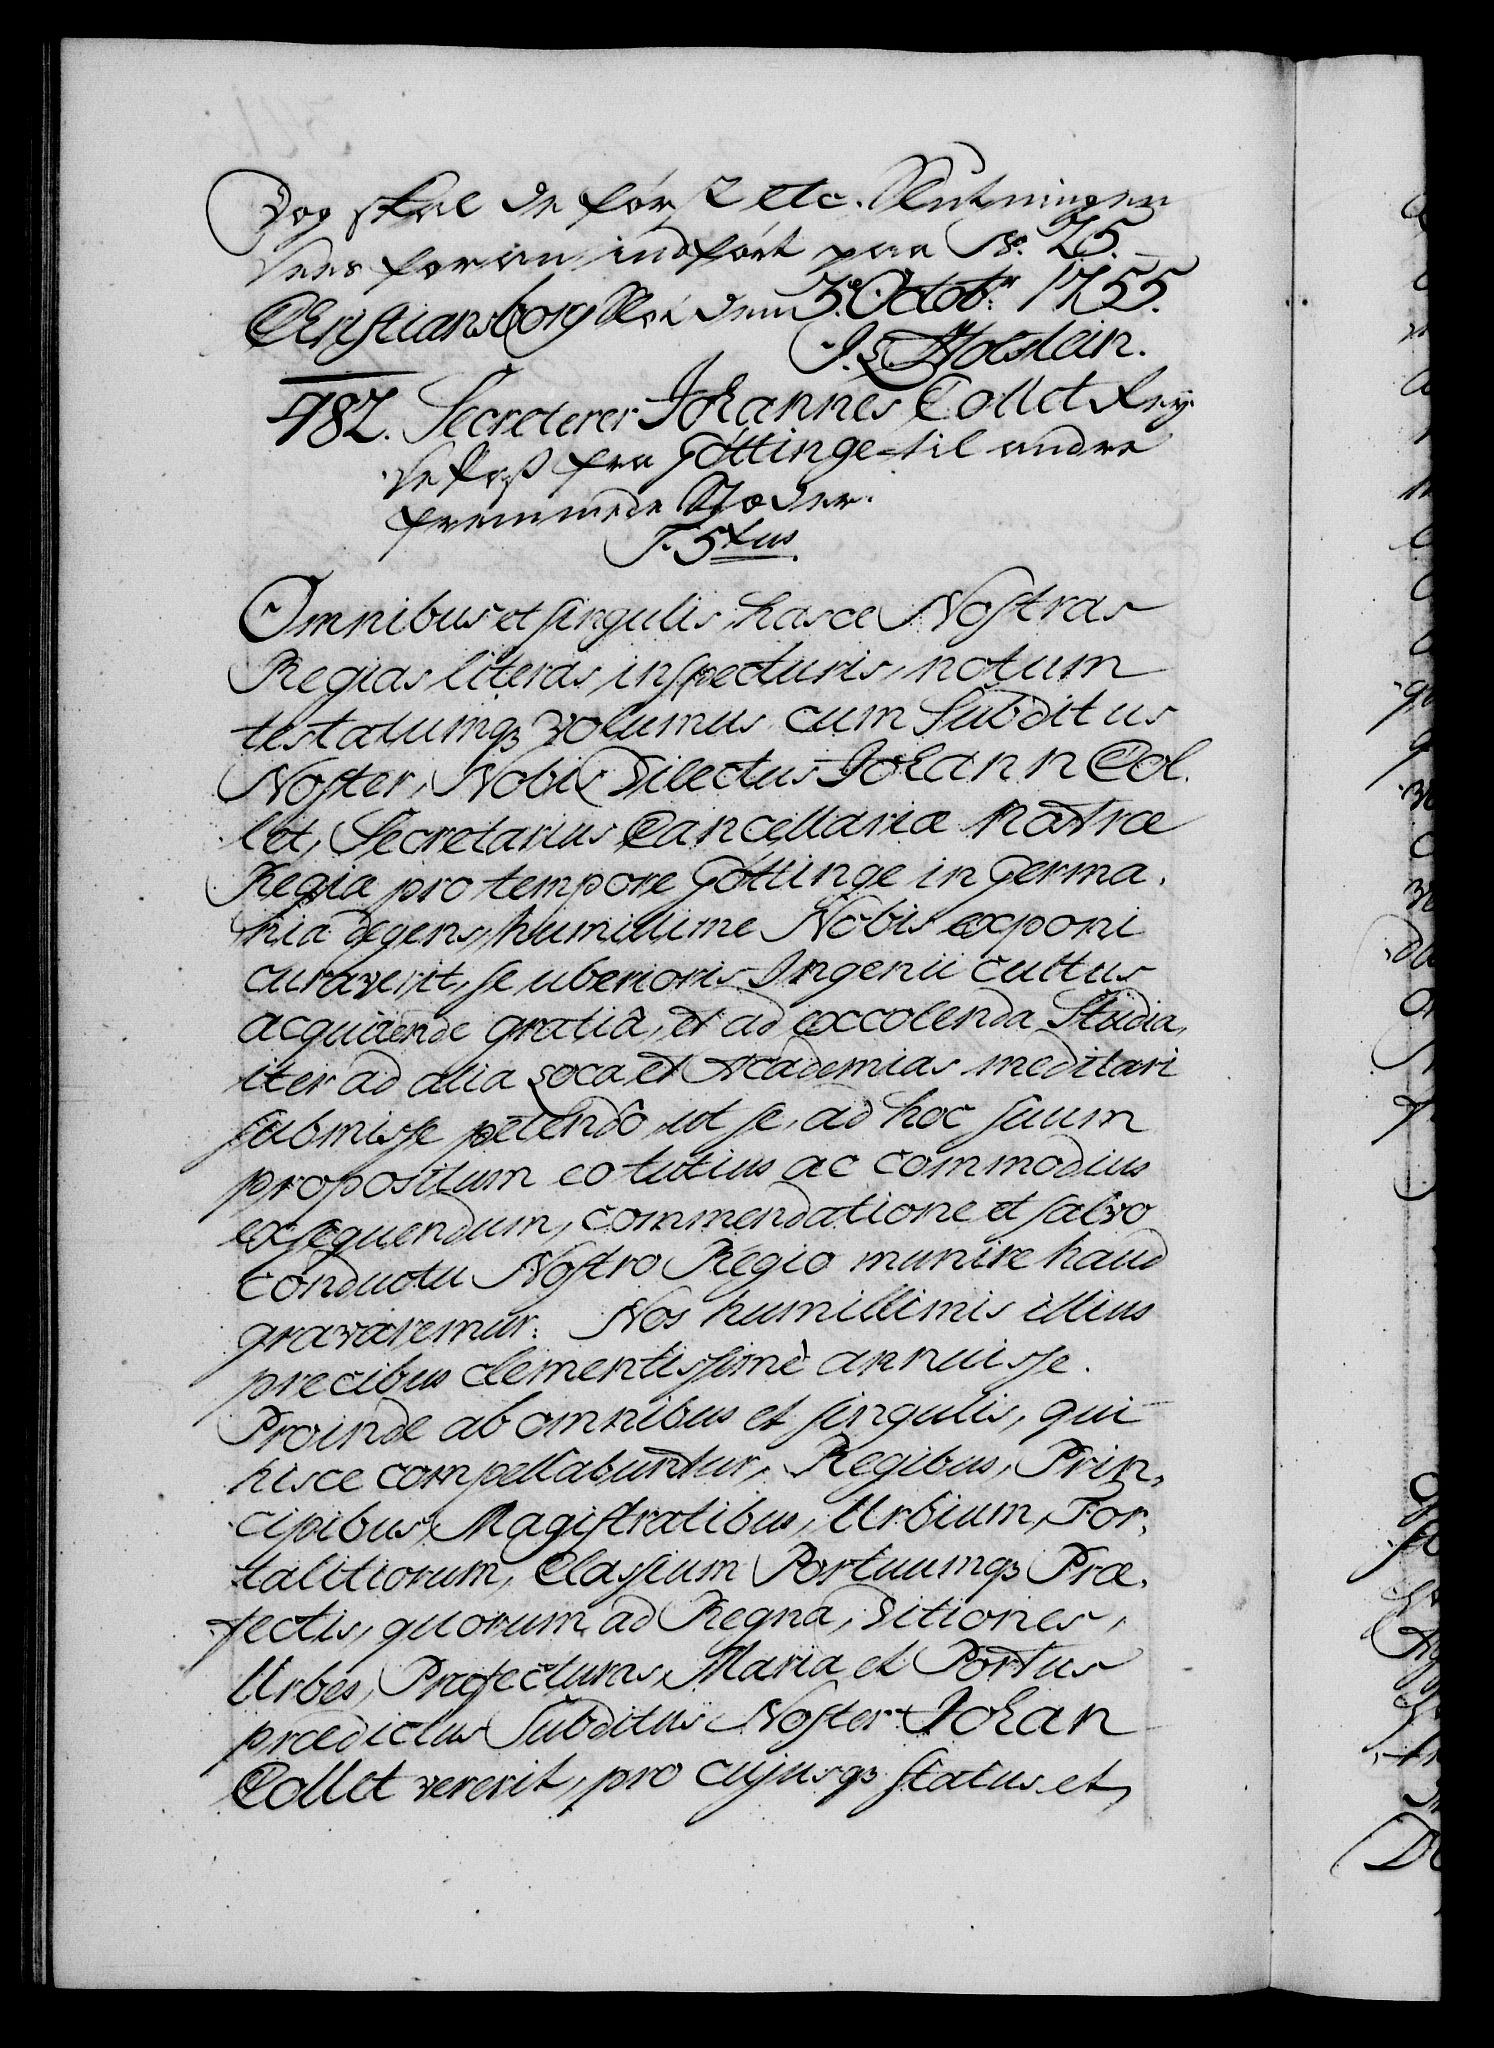 Dog skal de først etc. Slutningen
sees foran indført paa No. 25.
Christiansborg Slot den 3. Octobr 1755.
J. L. Holstein.
482. Secreterer Johannes Collet Rey-
se Pass fra Göttinge til andre
fremmede Stæder.
F. 5tus
Omnibus et singulis, hasce Nostras
Regias literas inspecturis, notum
testatumqz volumus cum Subditus
Noster, Nobis Dilectus Johann Col-
let, Secretarius Cancellariæ Nostræ
Regiæ pro tempore Göttingæ in Germa-
nia degens, humillime Nobis exponi
curaverit, se uberioris Ingenii cultus
acquirende gratiâ, et ad excolenda Studia,
iter ad alia Loca et Academias meditari
submisse petendo, ut se, ad hoc suum
propositum eo tutius ac commodius
exsequendum, commendatione et salvo
conductu Nostro Regio munire haud
gravaremur: Nos humillimis illius
precibus clementissimè annuisse.
Proinde ab omnibus et singulis, qui
hisce compellabuntur, Regibus, Prin-
cipibus, Magistratibus, Urbium, For-
talitiorum, Classium Portuumqz Præ-
fectis, quorum ad Regna, Ditiones,
Urbes, Præfecturas, Maria et Portus
prædictus Subditus Noster Johan
Collet venerit, pro cujusqz status et